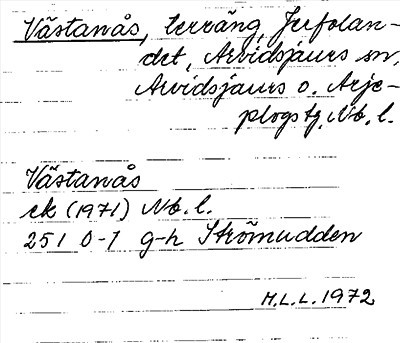 Västanås, terräng, Jerfolan-
det, Arvidsjaurs sn,
Arvidsjaurs o. Arje-
plogs tg, Nb. l.
Västanås
ek (1971) Nb. l.
25 I 0-1 g-h Strömudden
H.L.L. 1972